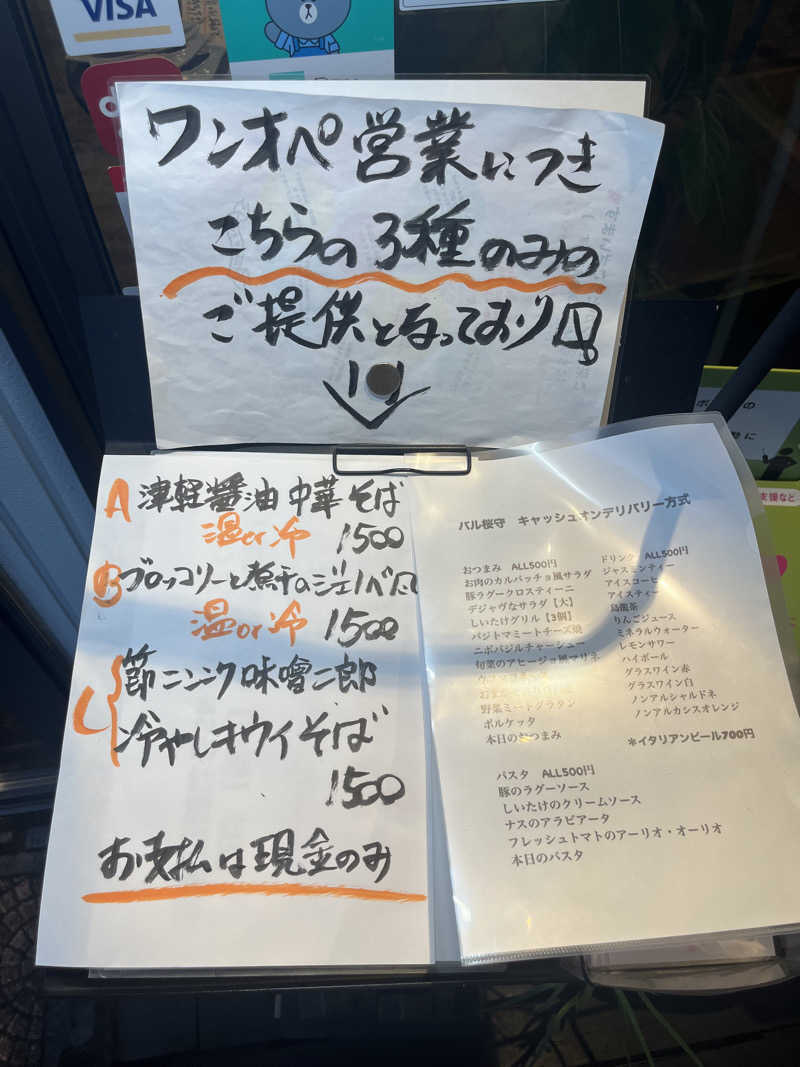 VISA
ワンオペ営業につき
こちらの3種のみの
ご提供となっており〼
A 津軽醤油中華そば
温or冷 1500
B ブロッコリーと煮干のジェノベ風
温or冷 1500
節ニンニク味噌二郎
冷やしキウイそば
1500
お支払は現金のみ
バル桜守 キャッシュオンデリバリー方式
おつまみ ALL500円
お肉のカルパッチョ風サラダ
豚ラグークロスティーニ
デジャヴなサラダ【大】
しいたけグリル【3個】
バジトマミートチーズ焼
ニボバジルチャーシュー
旬菜のアヒージョ風マリネ
野菜ミートグラタン
ポルケッタ
本日のおつまみ
ドリンク ALL500円
ジャスミンティー
アイスコーヒー
アイスティー
烏龍茶
りんごジュース
ミネラルウォーター
レモンサワー
ハイボール
グラスワイン赤
グラスワイン白
ノンアルシャルドネ
ノンアルカシスオレンジ
*イタリアンビール700円
パスタ ALL500円
豚のラグーソース
しいたけのクリームソース
ナスのアラビアータ
フレッシュトマトのアーリオ・オーリオ
本日のパスタ
支援など